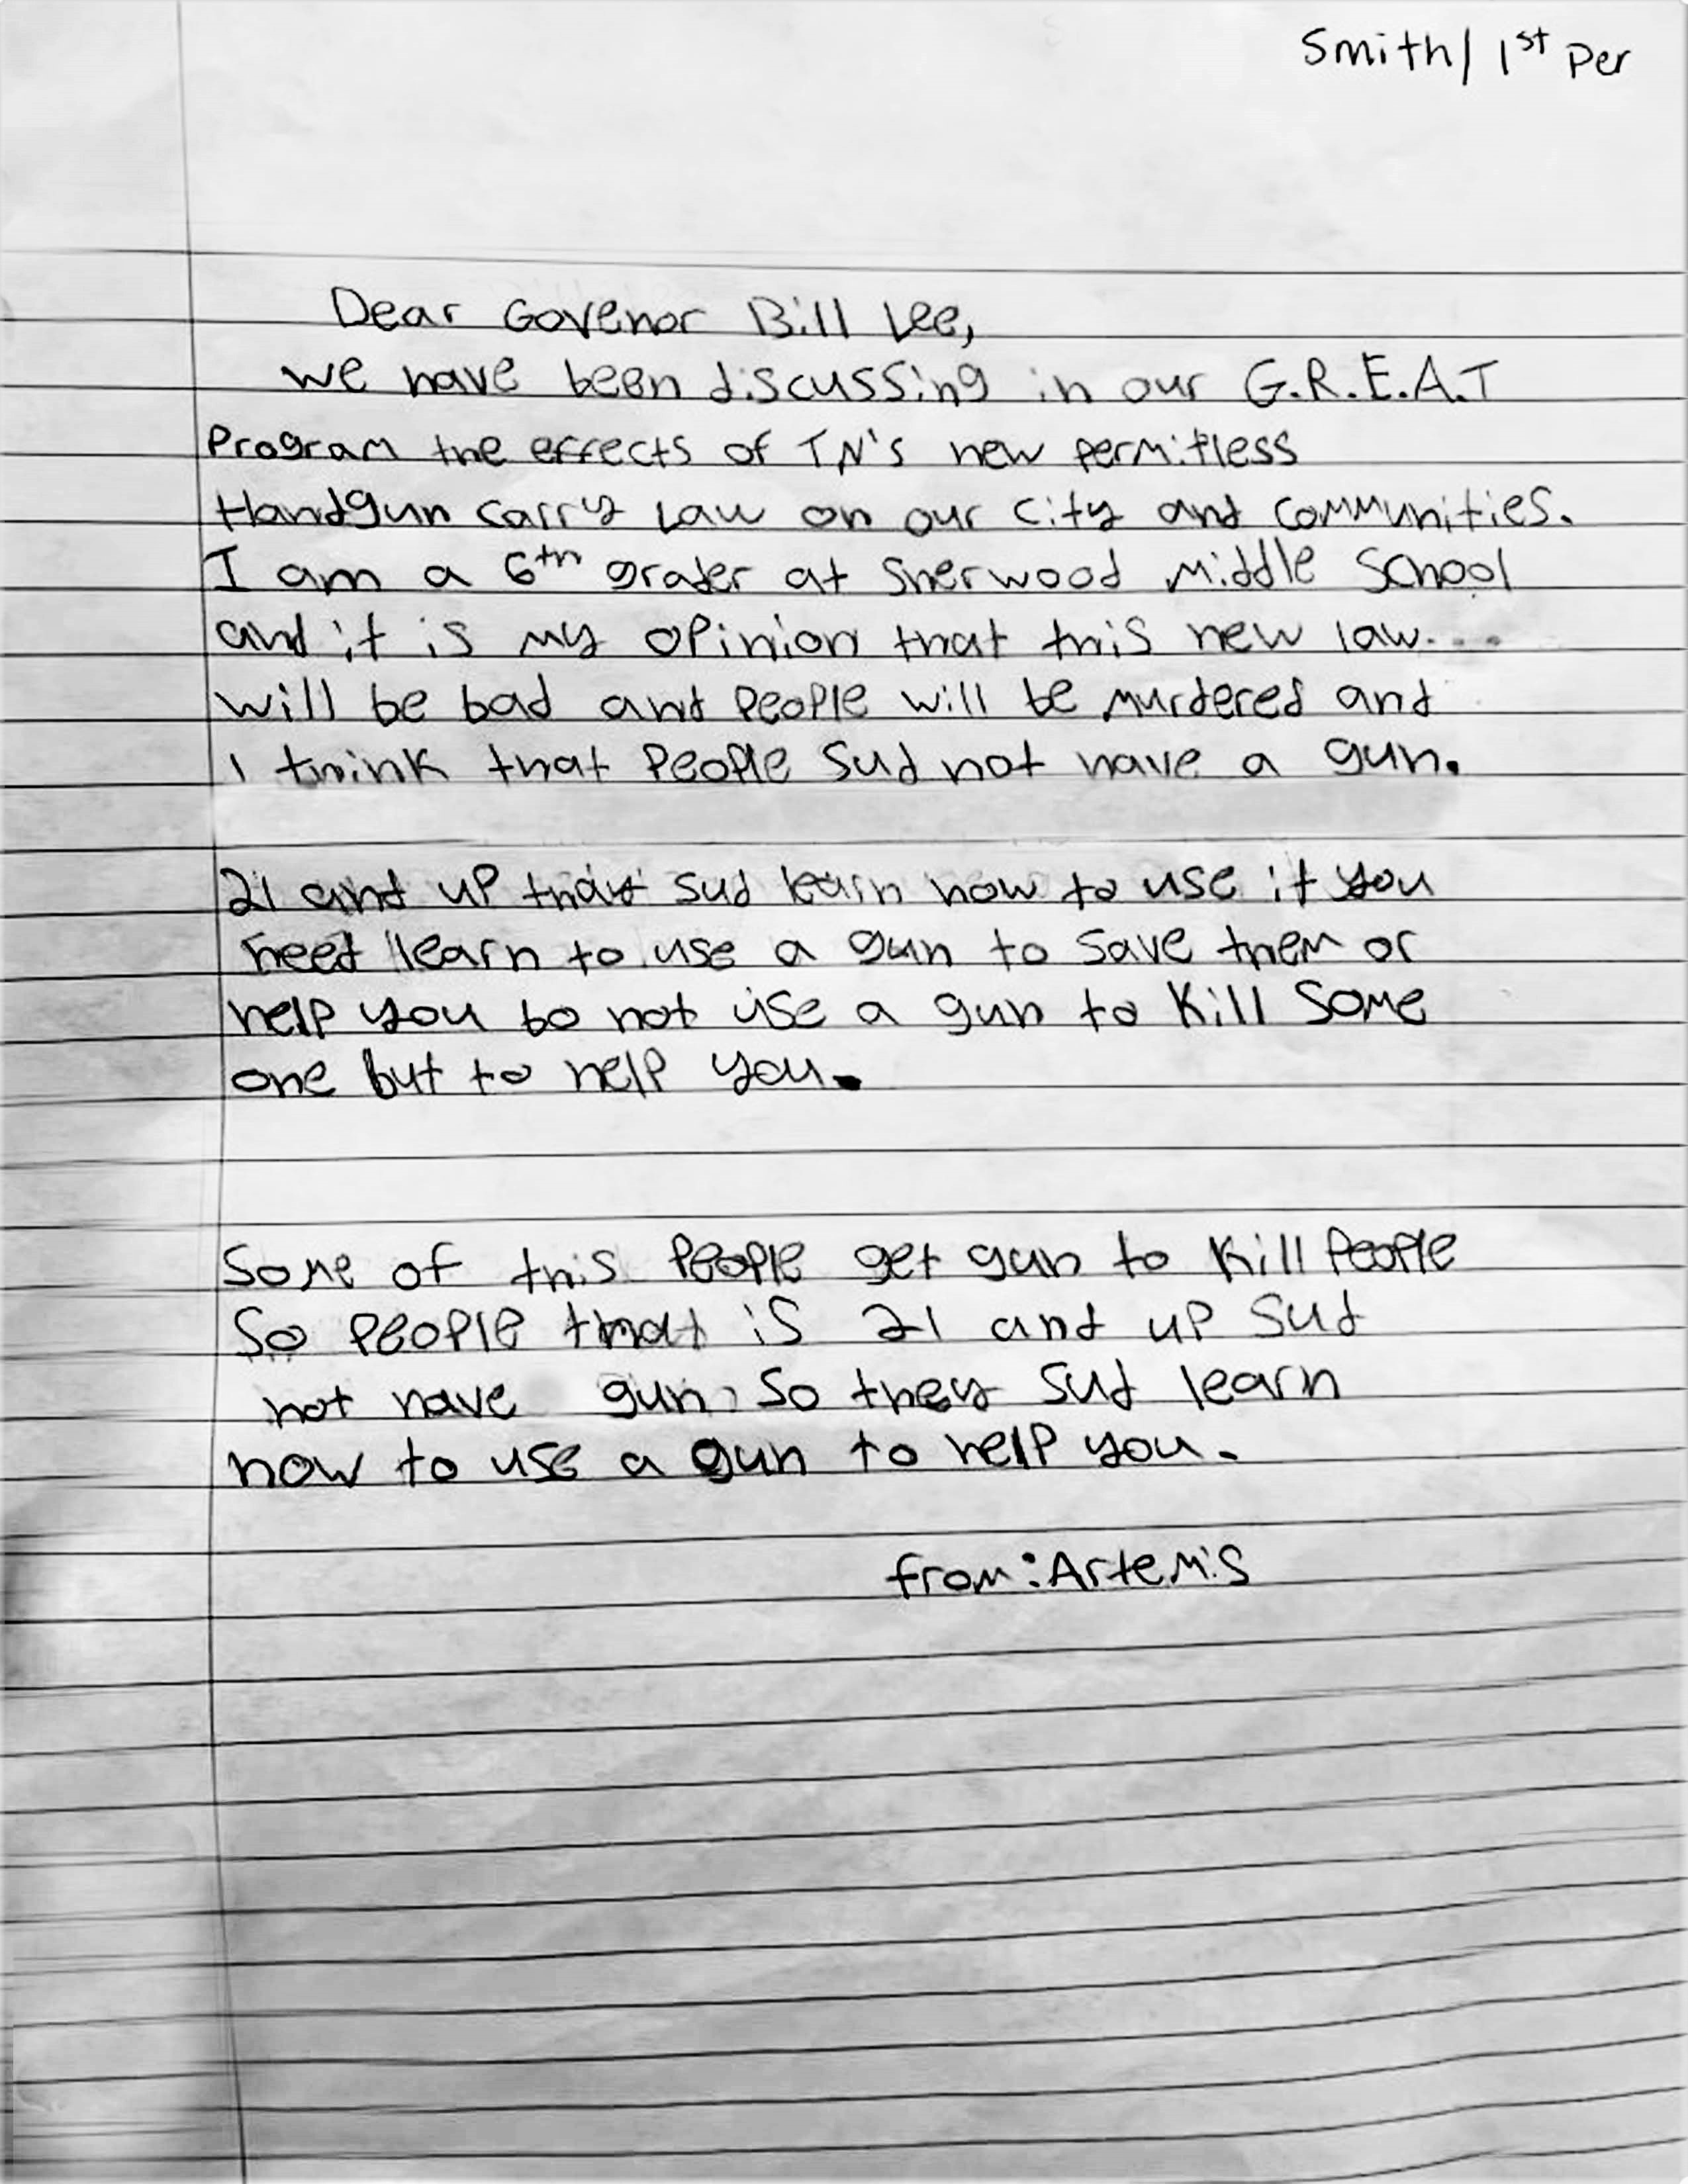 Smith/ 1st Per
Dear Govenor Bill Lee,
we have been discussing in our G.R.E.A.T
Program the effects of TN's new permitless
Handgun carry Law on our city and communities.
I am a 6th grader at Sherwood Middle School
and it is my opinion that this new law....
will be bad and people will be murdered and
I think that People Sud not have a gun.
21 and up that sud learn how to use it you
need learn to use a gun to save them or
help you to not use a gun to kill some
one but to help you.
Some of this People get gun to kill People
So people that is 21 and up Sud
not have gun. So they sud learn
how to use a gun to help you.
from: Artemis